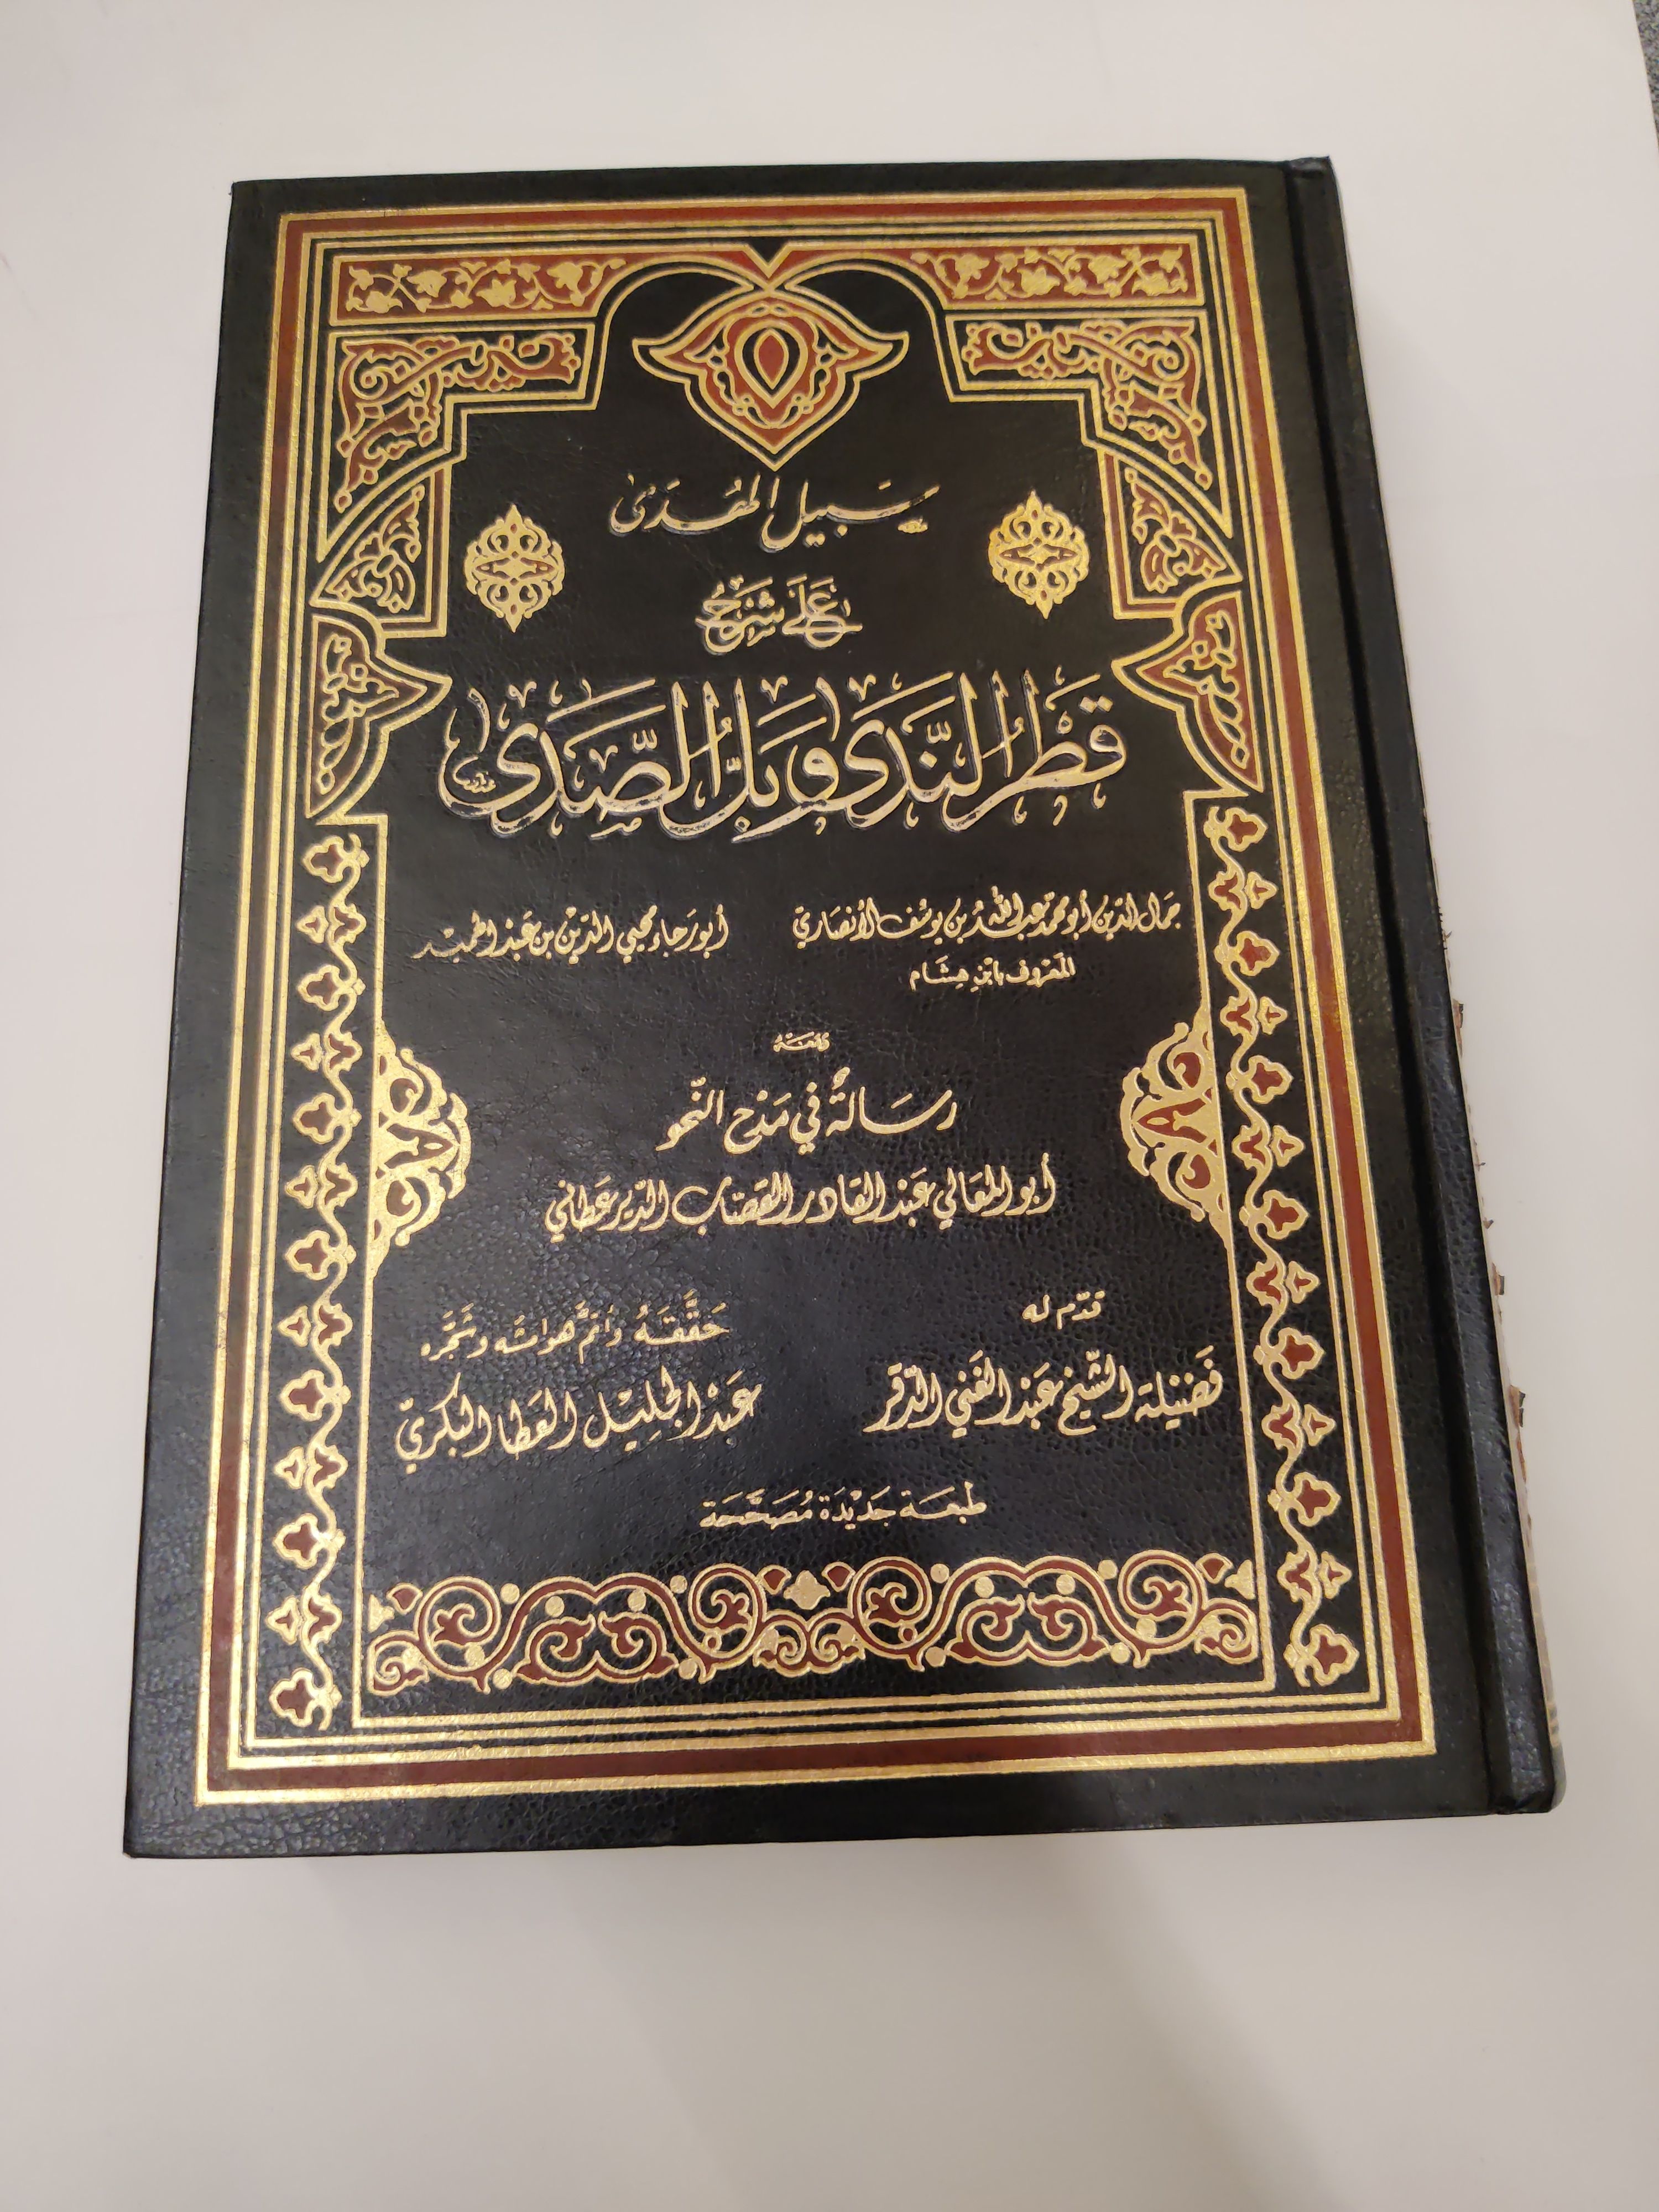 سَبِيل الهُدَىٰ
عَلَىٰ شَرْح
قَطْرُ النَّدَىٰ وَبَلُّ الصَّدَىٰ
جمَال الدّين أبو محمّد عبد الله بن يوسُف الأنصَاري
المَعْرُوف بابْنِ هِشَام
أبو رَجَاء محيي الدّيْن بن عَبْد الحميْد
وَمَعَهُ
رسَالةٌ في مَدْح النّحو
أبو المعَالي عَبْد القادر القصّاب الدّير عَطاني
قدّم له
فَضيْلة الشّيخ عَبْد الغَني الدّقر
حَقَّقَهُ وأتمَّ هوامشَه وشَجَّره
عَبْد الجَلِيْل العَطا البَكريّ
طبعَة جَدِيْدَة مُصَحَّحَة